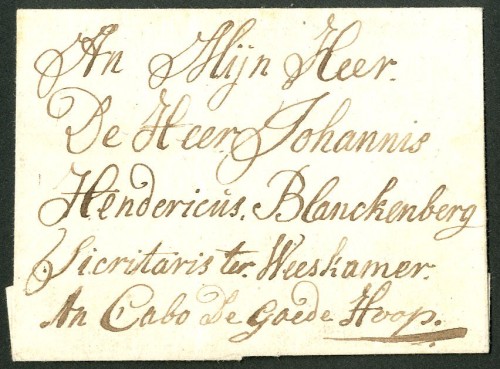 An Mijn Heer.
De Heer Johannis
Hendericus. Blanckenberg
Sicritaris ter. Weeskamer.
An Cabo De goede Hoop.